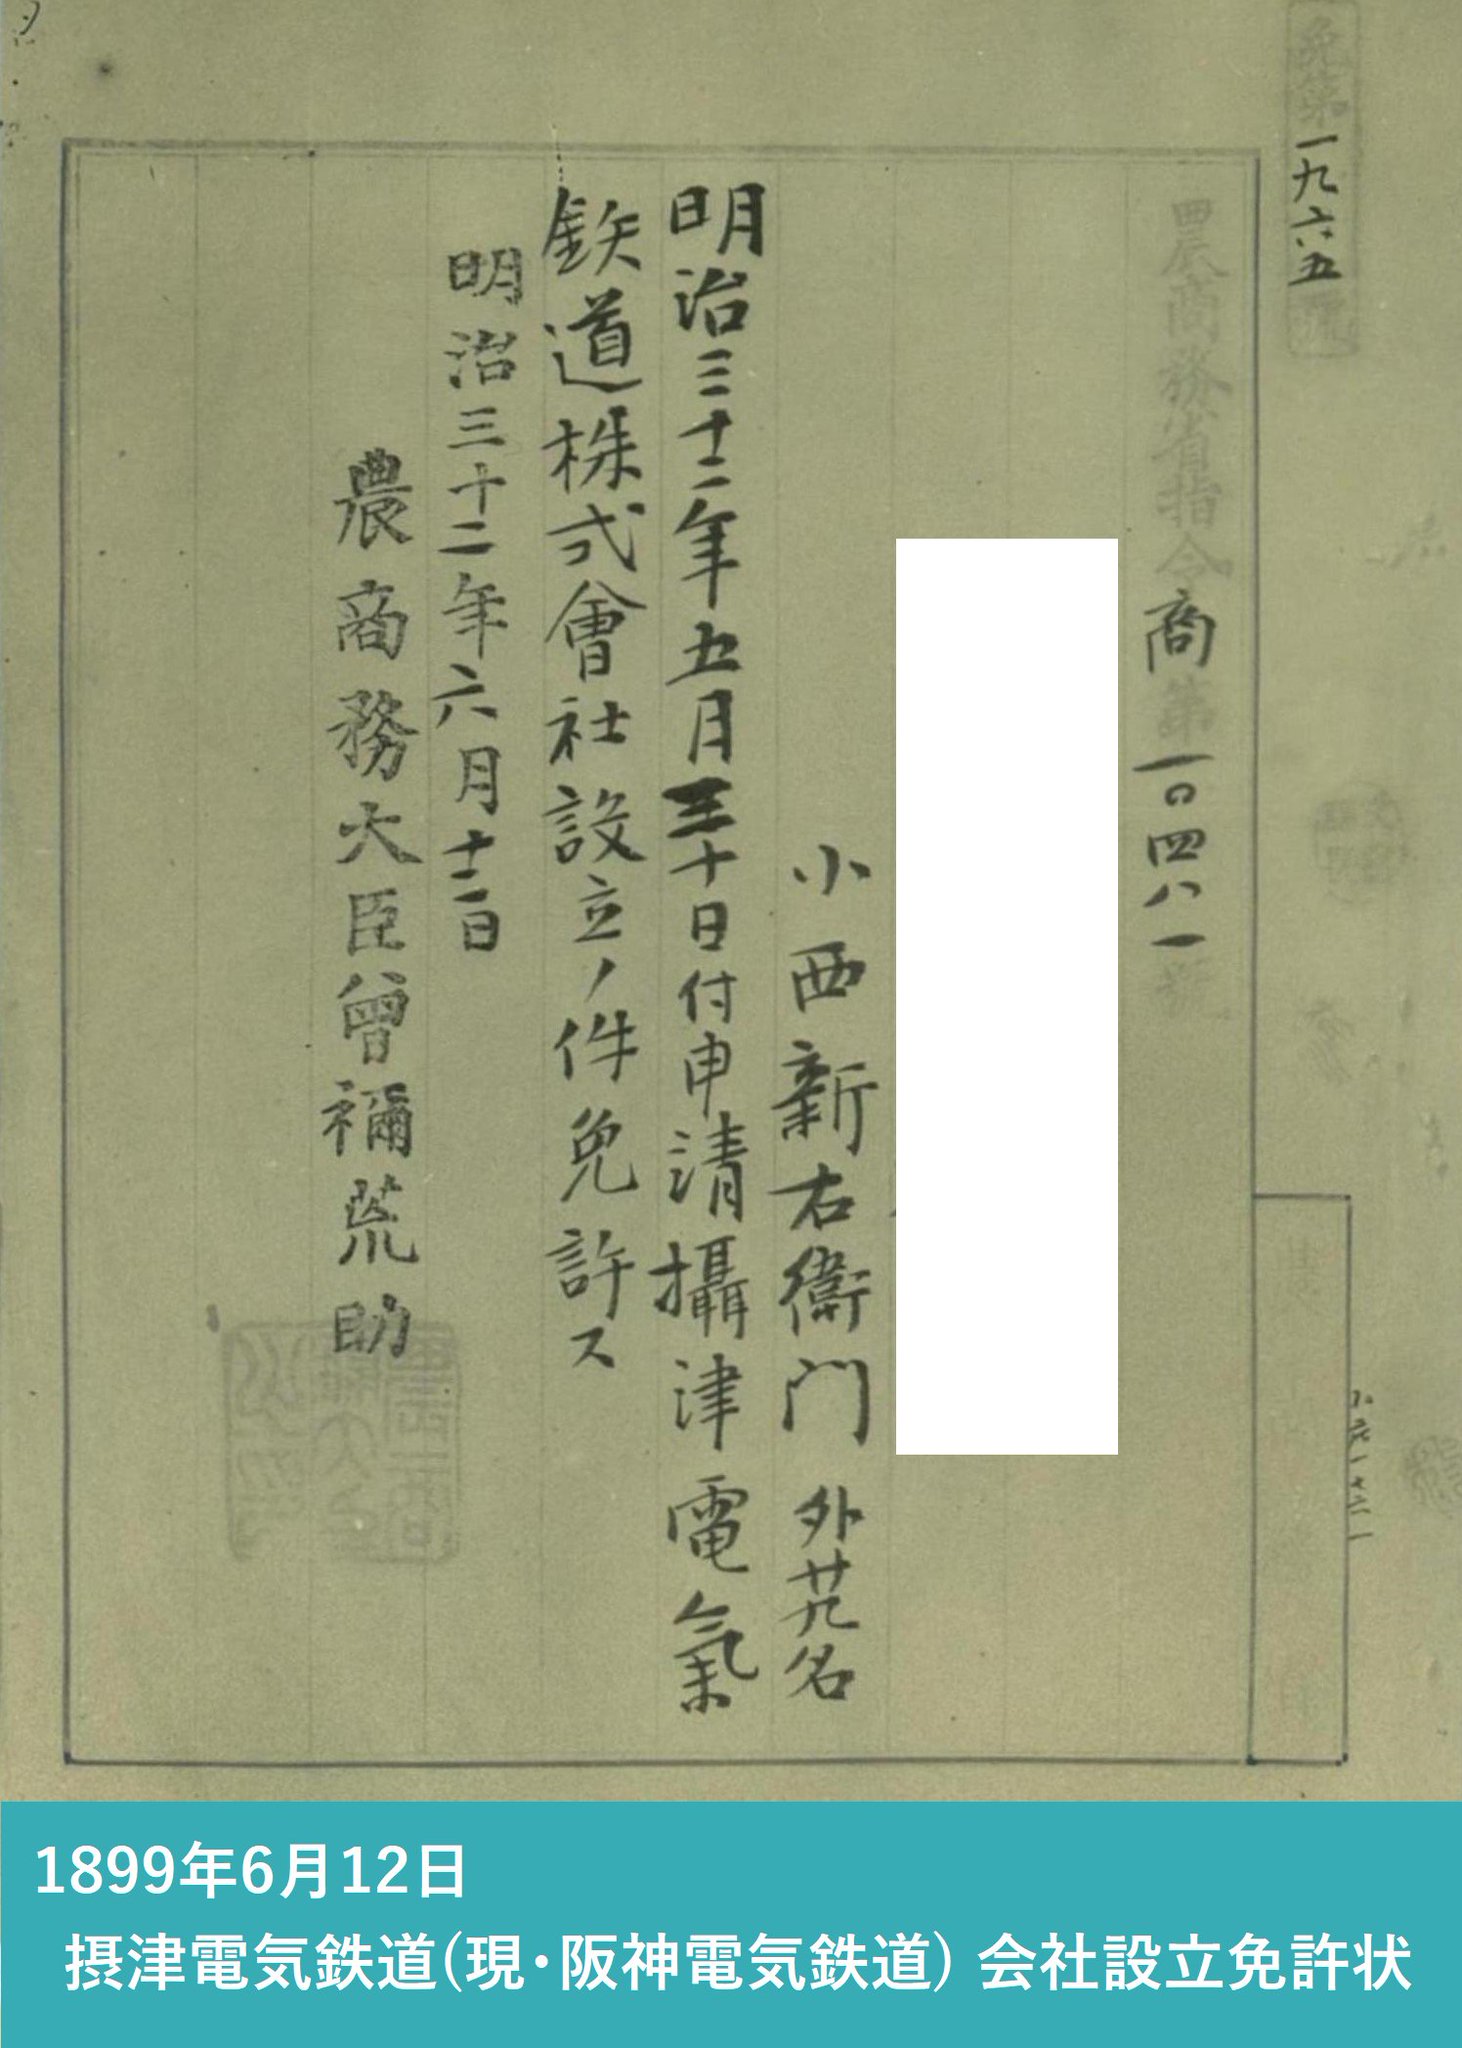 免第一九六五號
農商務省指令商第一〇四八一號
小西新右衛門 外廿九名
明治三十二年五月三十日付申請攝津電氣
鉄道株式會社設立ノ件免許ス
明治三十二年六月十二日
農商務大臣曾禰荒助
1899年6月12日
摂津電気鉄道(現・阪神電気鉄道) 会社設立免許状